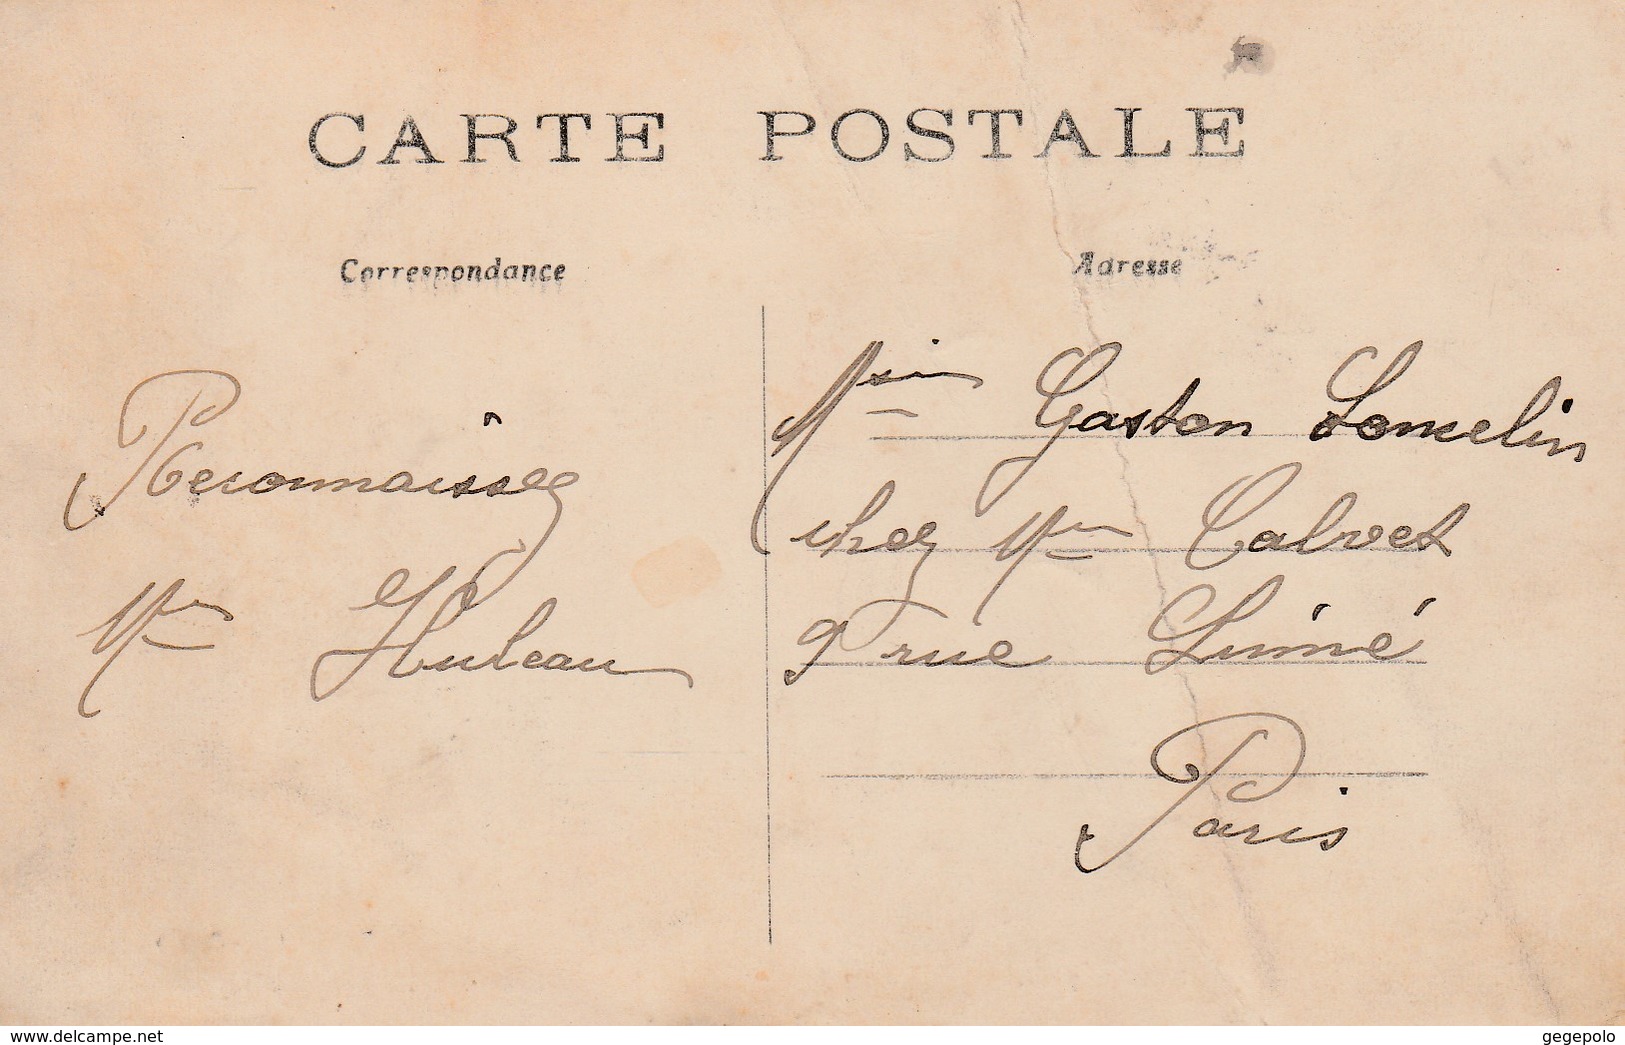 CARTE POSTALE
Correspondance
Adresse
Reconnaissez
Mme Huleau
Msieu Gaston Lomelin
chez Mme Calvet
9 rue Linné
Paris
delcampe.net
gegepolo